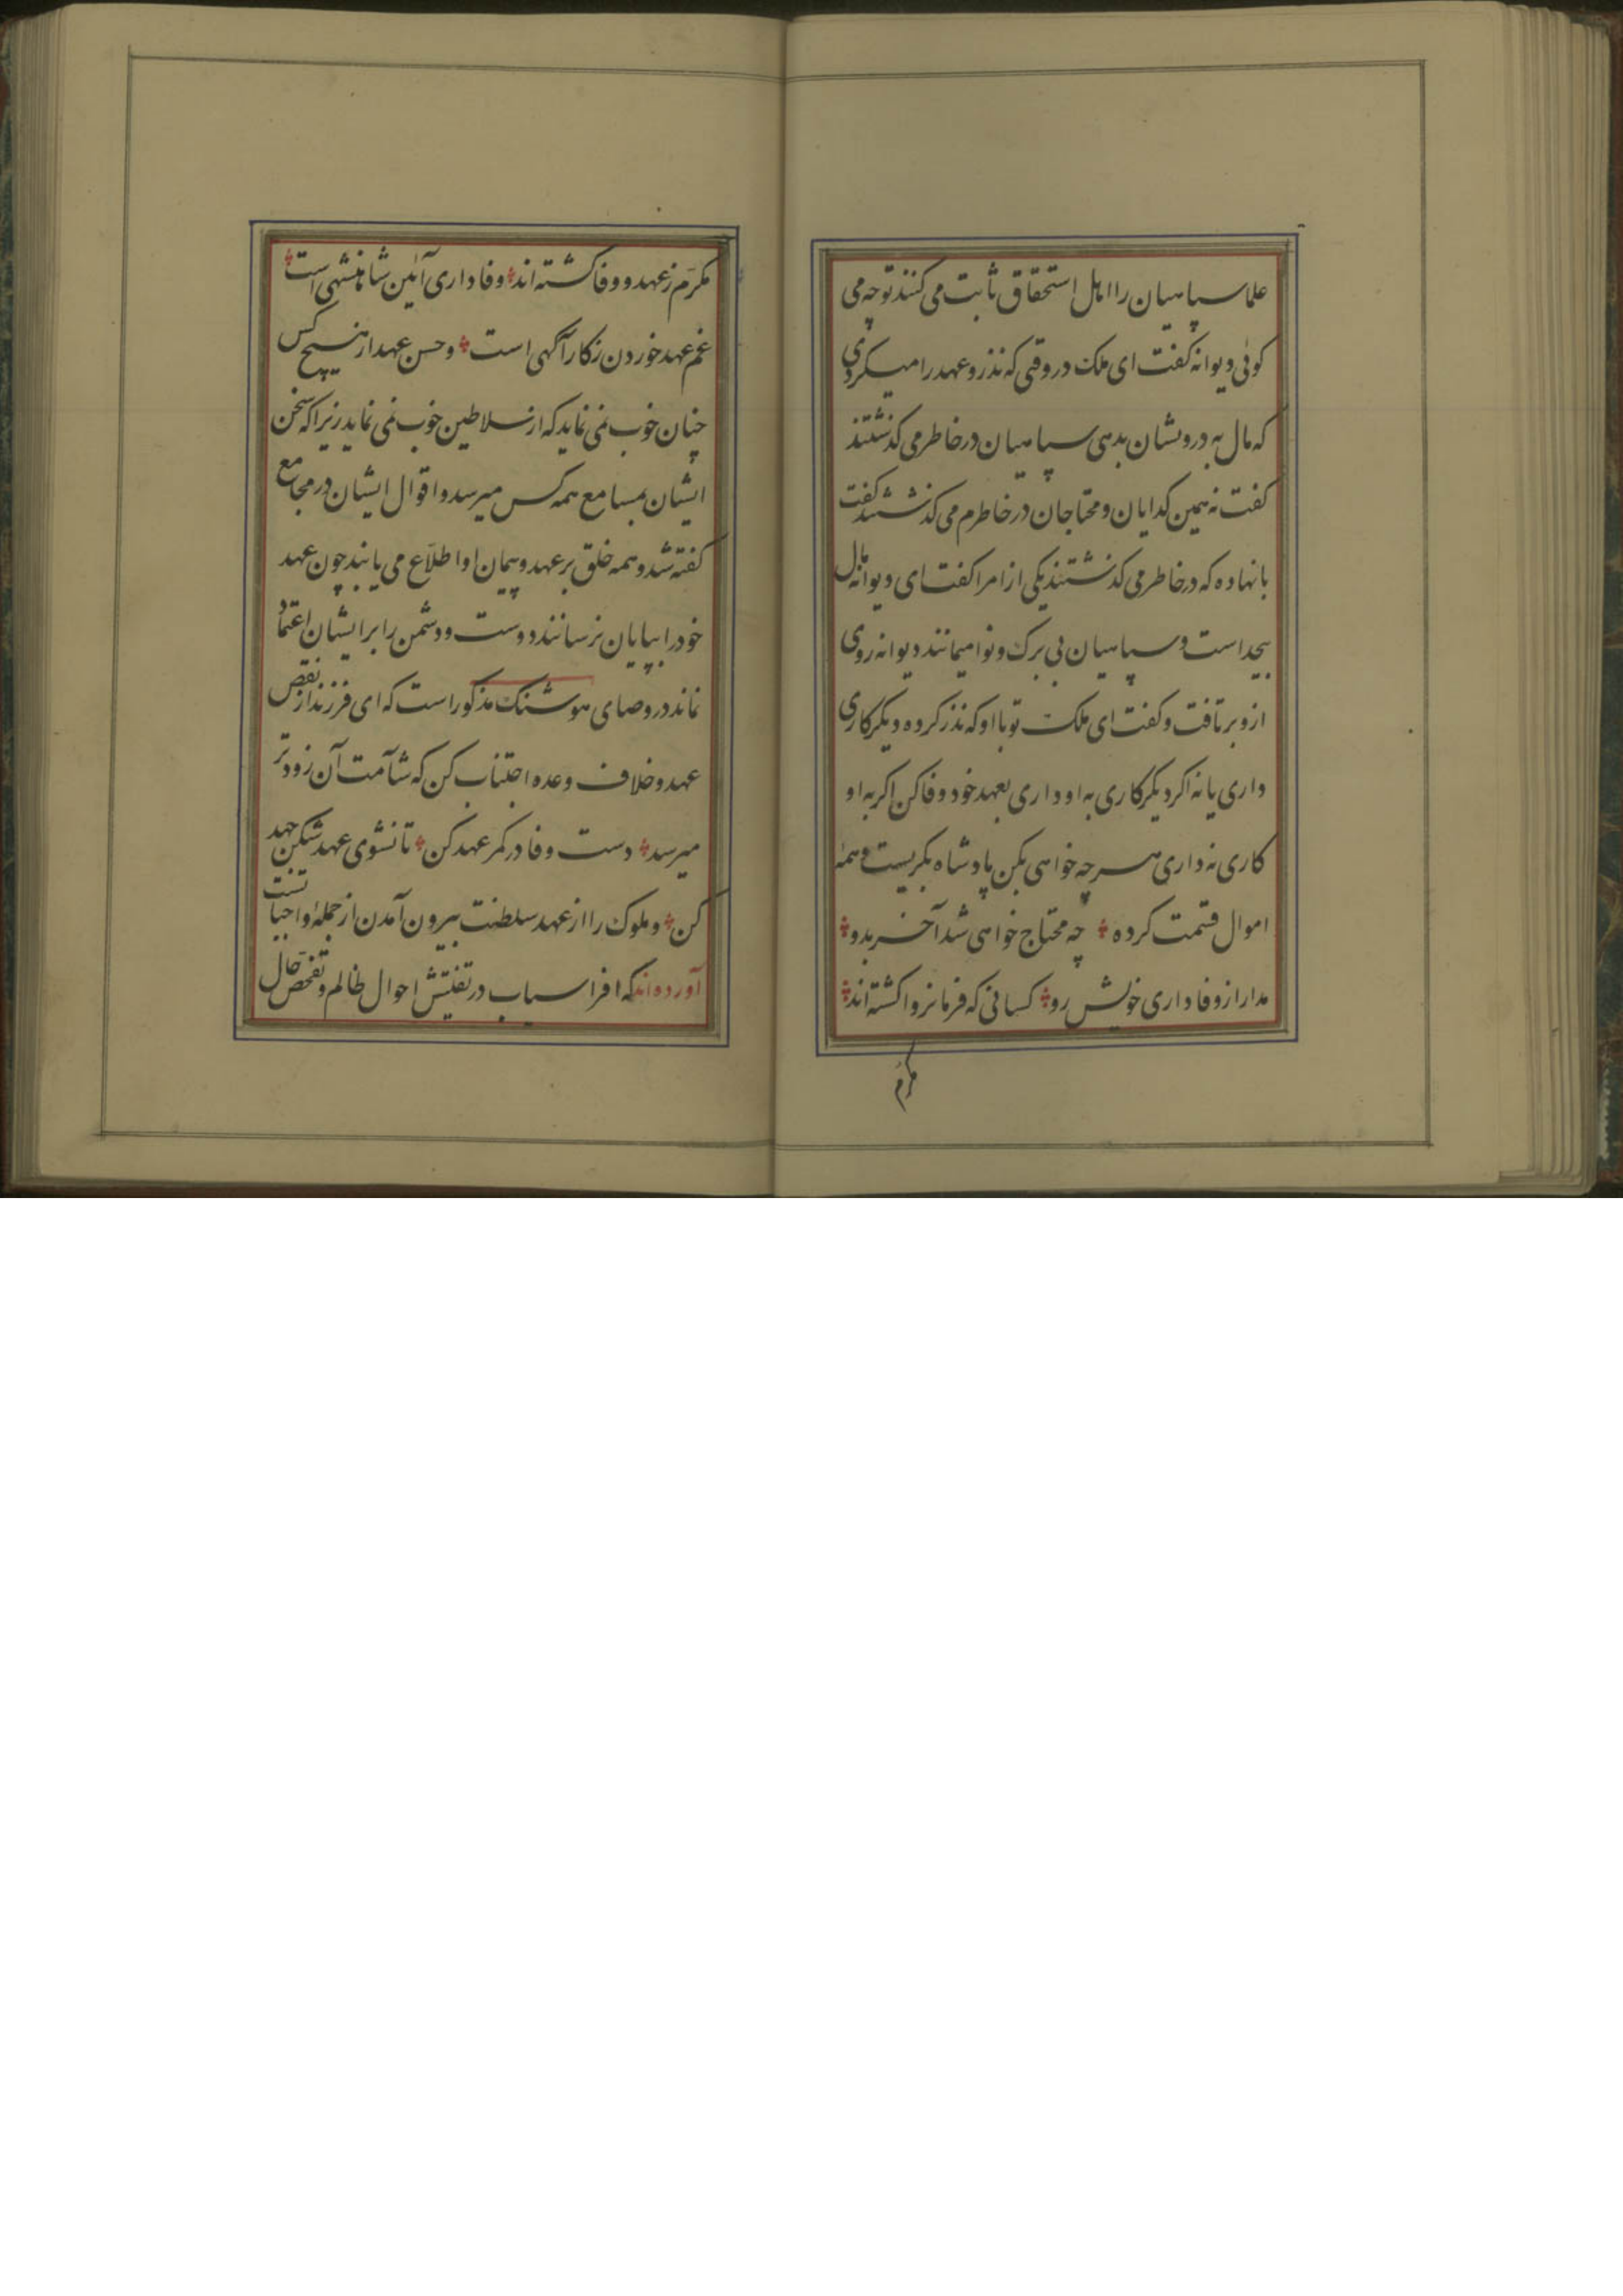 علما سپاهیان را اهل استحقاق ثابت می کنند تو چه می
کوئی دیوانه کفت ای ملک در وقتی که نذر و عهد را میکردی
که مال به درویشان بدهی سپاهیان در خاطر می کذشتند
کفت نه همین کدایان و محتاجان در خاطرم می کذشتند کفت
بانها ده که در خاطر می کذشتند یکی از امرا کفت ای دیوانه مال
بیحد است و سپاهیان بی برک و نوا میمانند دیوانه روی
ازو برتافت و کفت ای ملک تو با او که نذر کرده دیکر کاری
داری یا نه اکر دیکر کاری به او داری بعهد خود وفا کن اکر به او
کاری نه داری هر چه خواهی بکن پادشاه بکریست و همه
اموال قسمت کرده چه محتاج خواهی شد آخر بدو
مدار از وفاداری خویش رو کسانی که فرمانروا کشته اند
مکرم
مکرم ز عهد و وفا کشته اند وفاداری آئین شاهنشهی است
غم عهد خوردن ز کار آکهی است و حسن عهد از هیچ کس
چنان خوب نمی نماید که از سلاطین خوب نمی نماید زیرا که سخن
ایشان بمسامع همه کس میرسد و اقوال ایشان در مجامع
کفته شد و همه خلق بر عهد و پیمان او اطلاع می یابند چون عهد
خود را بپایان نرسانند دوست و دشمن را بر ایشان اعتماد
نماند در وصای هوشنک مذکور است که ای فرزند از نقص
عهد و خلاف وعده اجتناب کن که شآمت آن زودتر
میرسد دست وفا در کمر عهد کن تا نشوی عهد شکن جهد
کن و ملوک را از عهد سلطنت بیرون آمدن از جملهٔ واجبا تست
آورده اند که افراسیاب در تفتیش احوال ظالم و تفحص حال